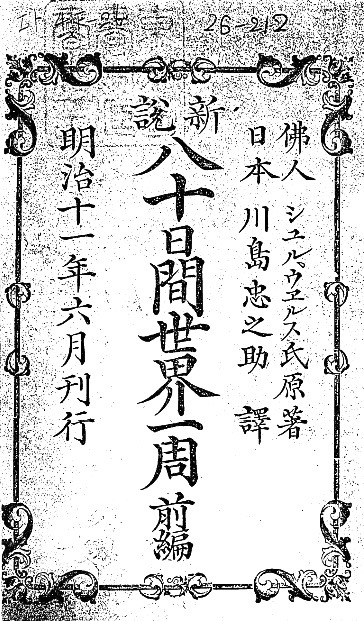 26-212
佛人 シユル、ウエルス氏原著
日本 川島忠之助 譯
新説
八十日間世界一周 前編
明治十一年六月刊行